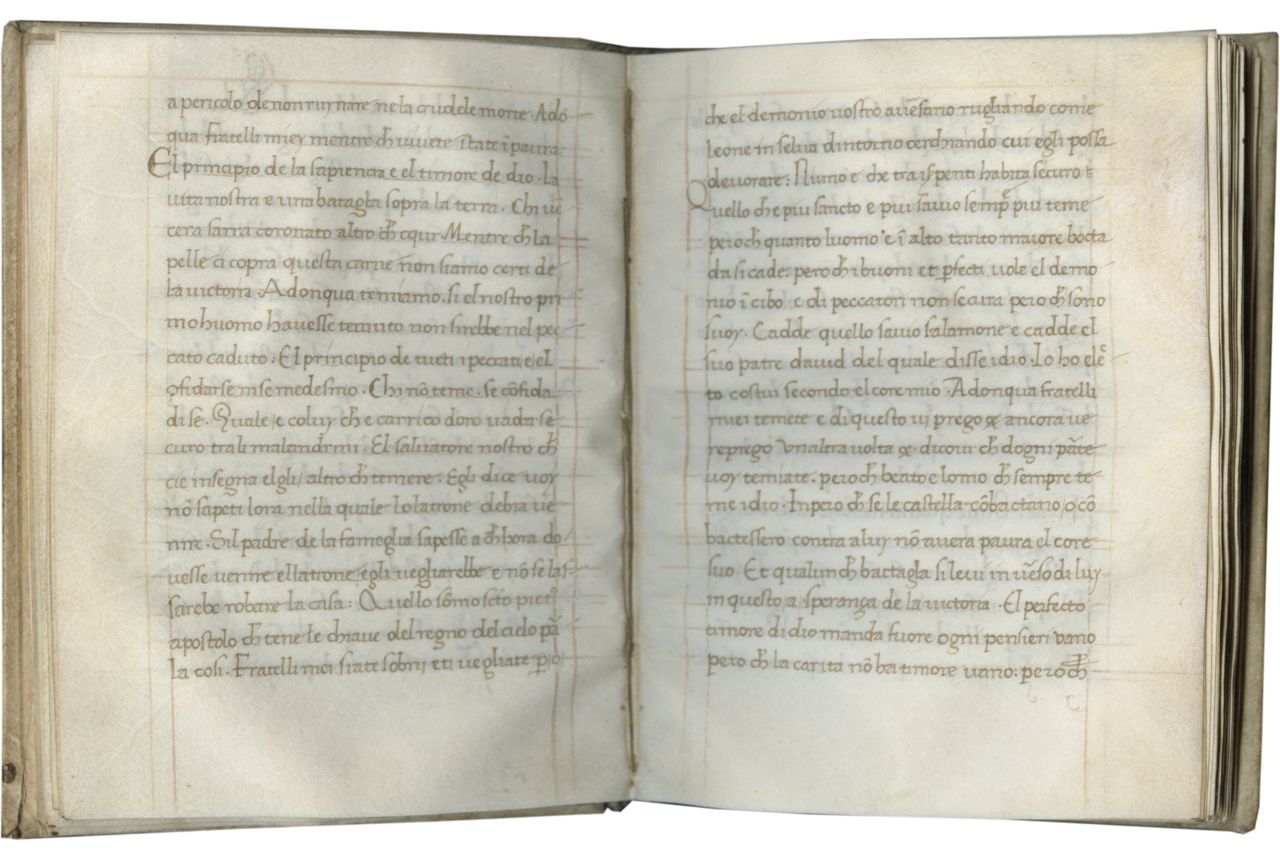 a pericolo de non ruynare ne la crudele morte. Adõ
qua fratelli miey mentro ch̃ uiuete state ĩ paura
El principio de la sapiencia e el timore de dio. La
uita nostra e una batagla sopra la terra. Chi uĩ
cera sarra coronato altro ch̃ cqui. Mentre ch̃ la
pelle ci copra questa carne non siamo certi de
la uictoria. Adonqua temiamo. si el nostro pri
mo huomo hauesse temuto non sirebbe nel pec
cato caduto: El principio de tucti i peccati e el
cõfidarse in se medesmo. Chi nõ teme. se cõfida
di se. Quale e coluy ch̃ e carrico doro uada se
curo tra li malandrini. El saluatore nostro ch̃
cie insegna elgli altro ch̃ temere. Egli dice uoy
nõ sapeti lora nella quale lo latrone debia ue
nire. Sil padre de la fameglia sapesse a ch̃ hora do
uesse uenire el latrone egli uegliarebbe e nõ se las
sarebe robare la casa: Quello sõmo scõ pietº
apostolo ch̃ tene le chiaue del regno del cielo pã
la cosi. Fratelli mei siate sobrij et i uegliate p̱ o
che el demonio uostro auẽsario rugliando come
leone in selua dintorno cerchiando cui egli possa
deuorare: Niuno e che tra i spenti habita securo
Quello che e piu sancto e piu sauio semp̃ piu teme
pero ch̃ quanto luomo e ĩ alto tanto maiore bocta
da si cade. pero ch̃ i buoni et p̱fecti uole el demo
nio ĩ cibo. e di peccatori non se cura pero ch̃ sono
suoy. Cadde quello sauio salamone e cadde el
suo patre dauid del quale disse idio. Io ho elẽ
to costui secondo el core mio. Adonqua fratelli
miei temete e di questo ui prego & ancora ue
reprego unaltra uolta & dicoui ch̃ dogni pãte
uoy temiate. pero ch̃ beato e lomo ch̃ sempre te
me idio. Inpero ch̃ se le castella cõbactano o cõ
bactessero contra a luy nõ auera paura el core
suo. Et qualunch̃ bactagla si leui in uẽso di luy
in questo a sperança de la uictoria. El perfecto
timore di dio manda fuore ogni pensieri uano
pero ch̃ la carita nõ ha timore uano: pero ch̃